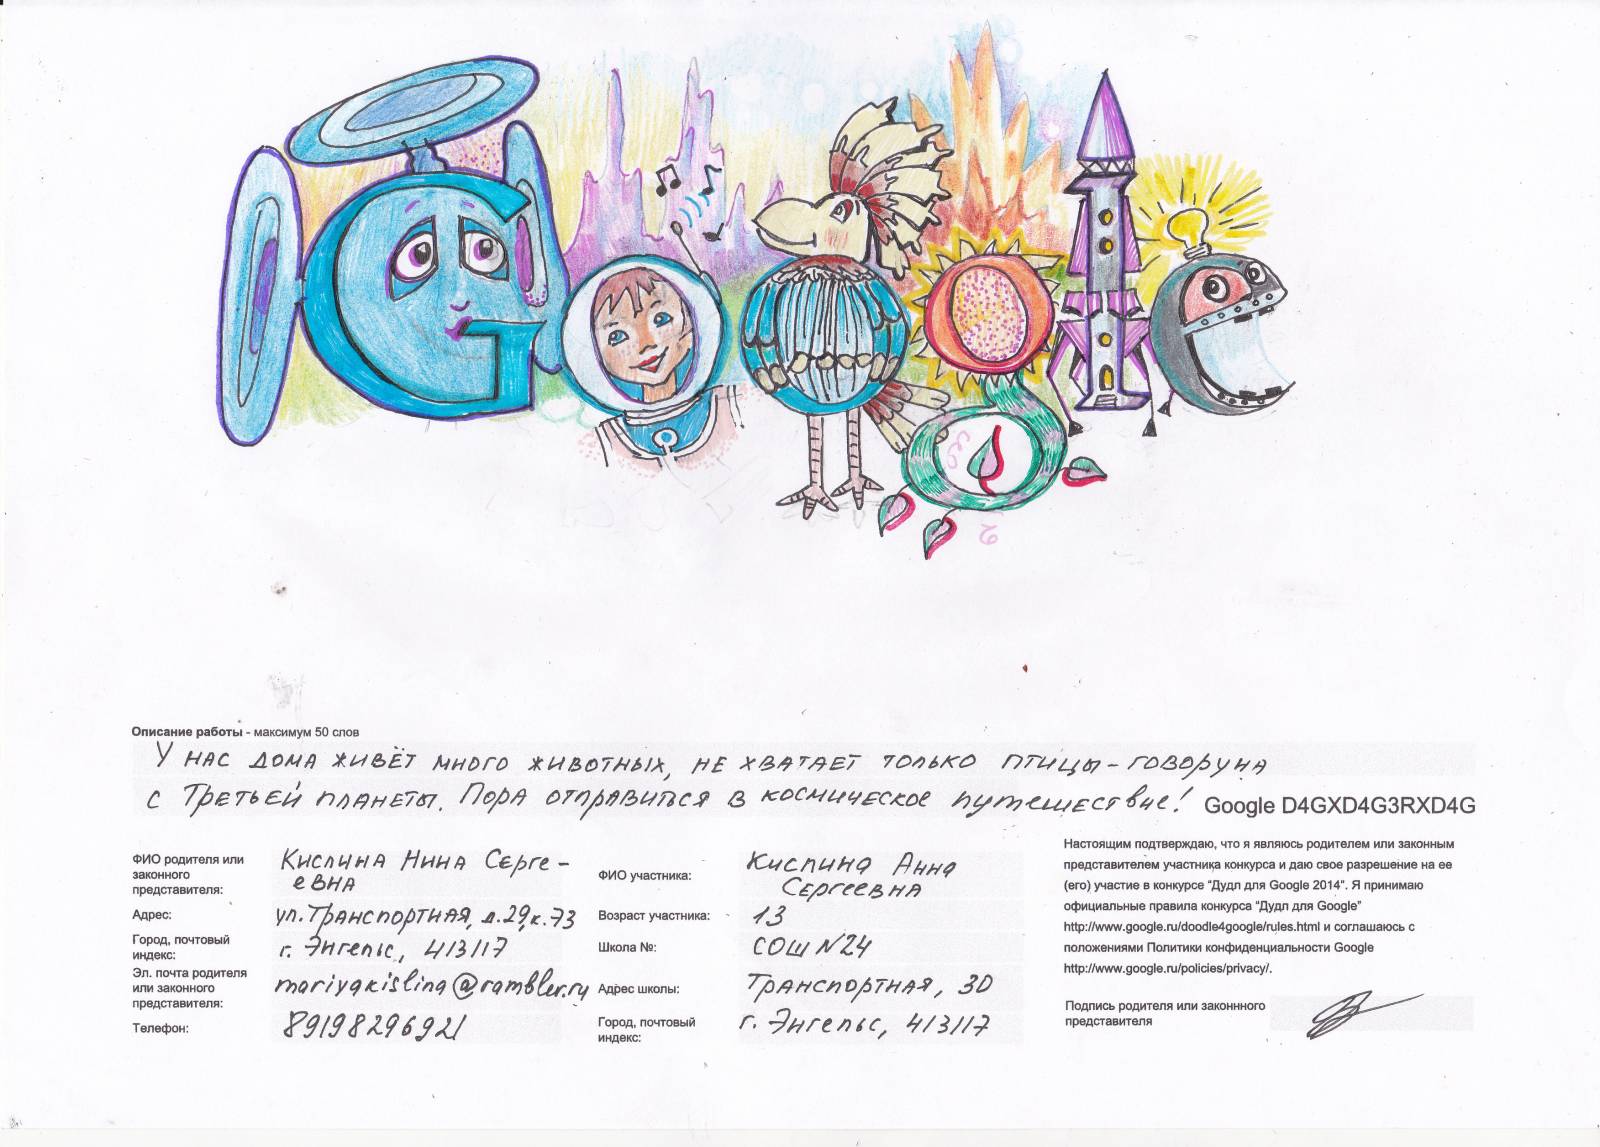 Google
Описание работы - максимум 50 слов
У нас дома живёт много животных, не хватает только птицы-говоруна
с Третьей планеты. Пора отправиться в космическое путешествие! Google D4GXD4G3RXD4G
ФИО родителя или
законного
представителя:
Кислина Нина Серге-
евна
ФИО участника:
Кислина Анна
Сергеевна
Адрес:
ул. Транспортная, д.29, к.73
Возраст участника:
13
Город, почтовый
индекс:
г. Энгельс, 413117
Школа №:
СОШ N24
Эл. почта родителя
или законного
представителя:
mariyakislina@rambler.ru
Адрес школы:
Транспортная, 3D
Телефон:
89198296921
Город, почтовый
индекс:
г. Энгельс, 413117
Настоящим подтверждаю, что я являюсь родителем или законным
представителем участника конкурса и даю свое разрешение на ее
(его) участие в конкурсе “Дудл для Google 2014”. Я принимаю
официальные правила конкурса “Дудл для Google”
http://www.google.ru/doodle4google/rules.html и соглашаюсь с
положениями Политики конфиденциальности Google
http://www.google.ru/policies/privacy/.
Подпись родителя или законнного
представителя